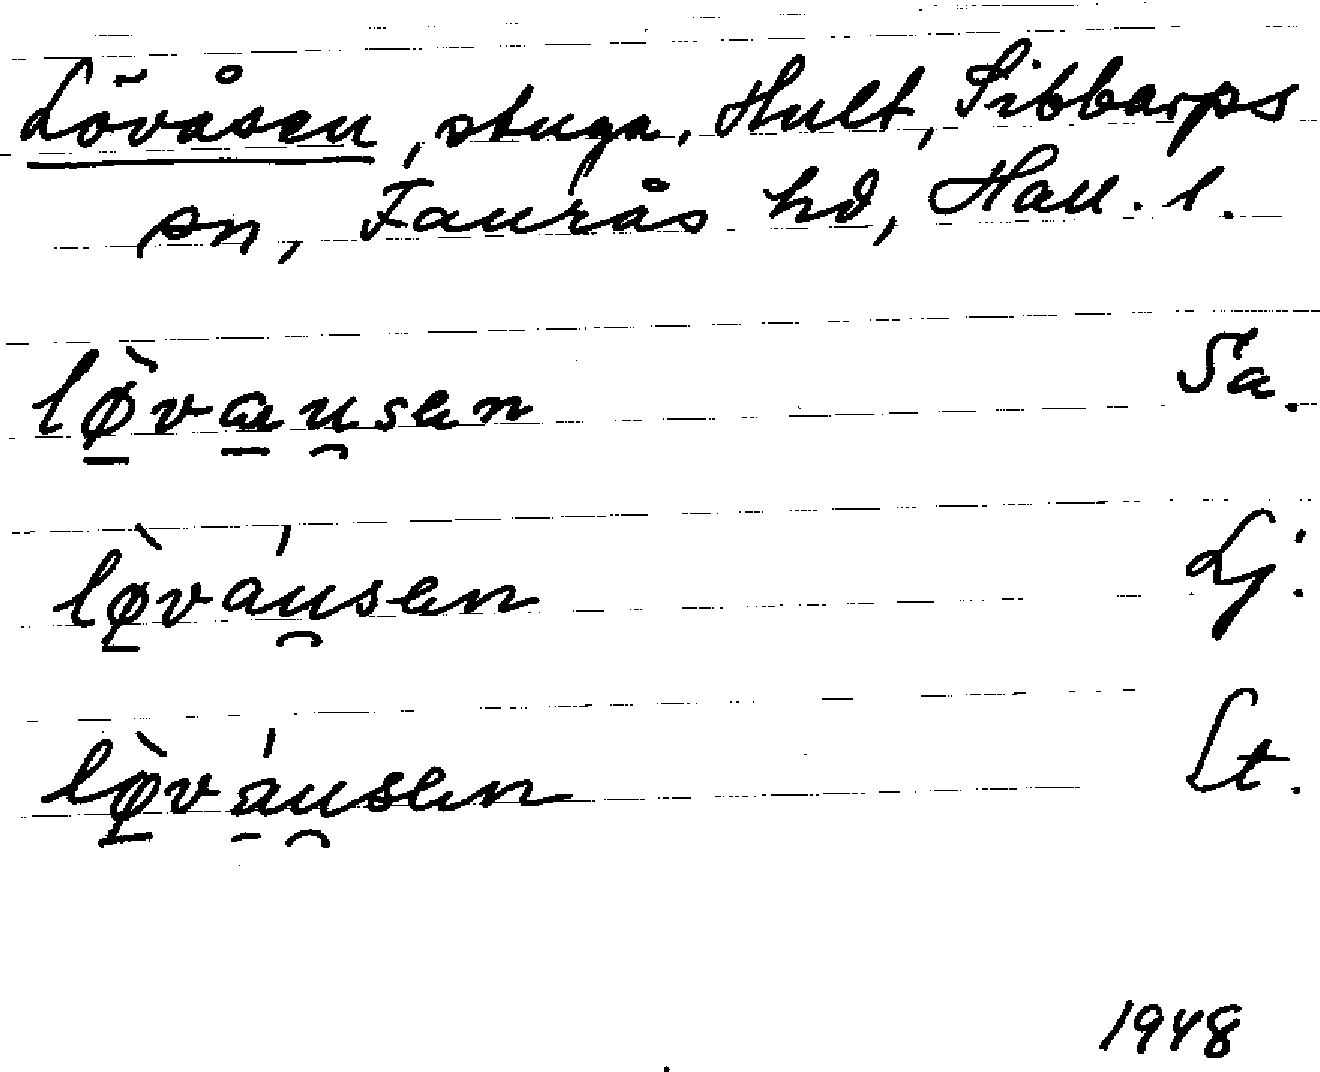 Lövåsen, stuga, Hult, Sibbarps
sn, Faurås hd, Hall. l.
lø̠̀va̠u̯sen Sa.
lø̠̀váu̯sen Lj.
lø̠̀vá̠u̯sen Lt.
1948